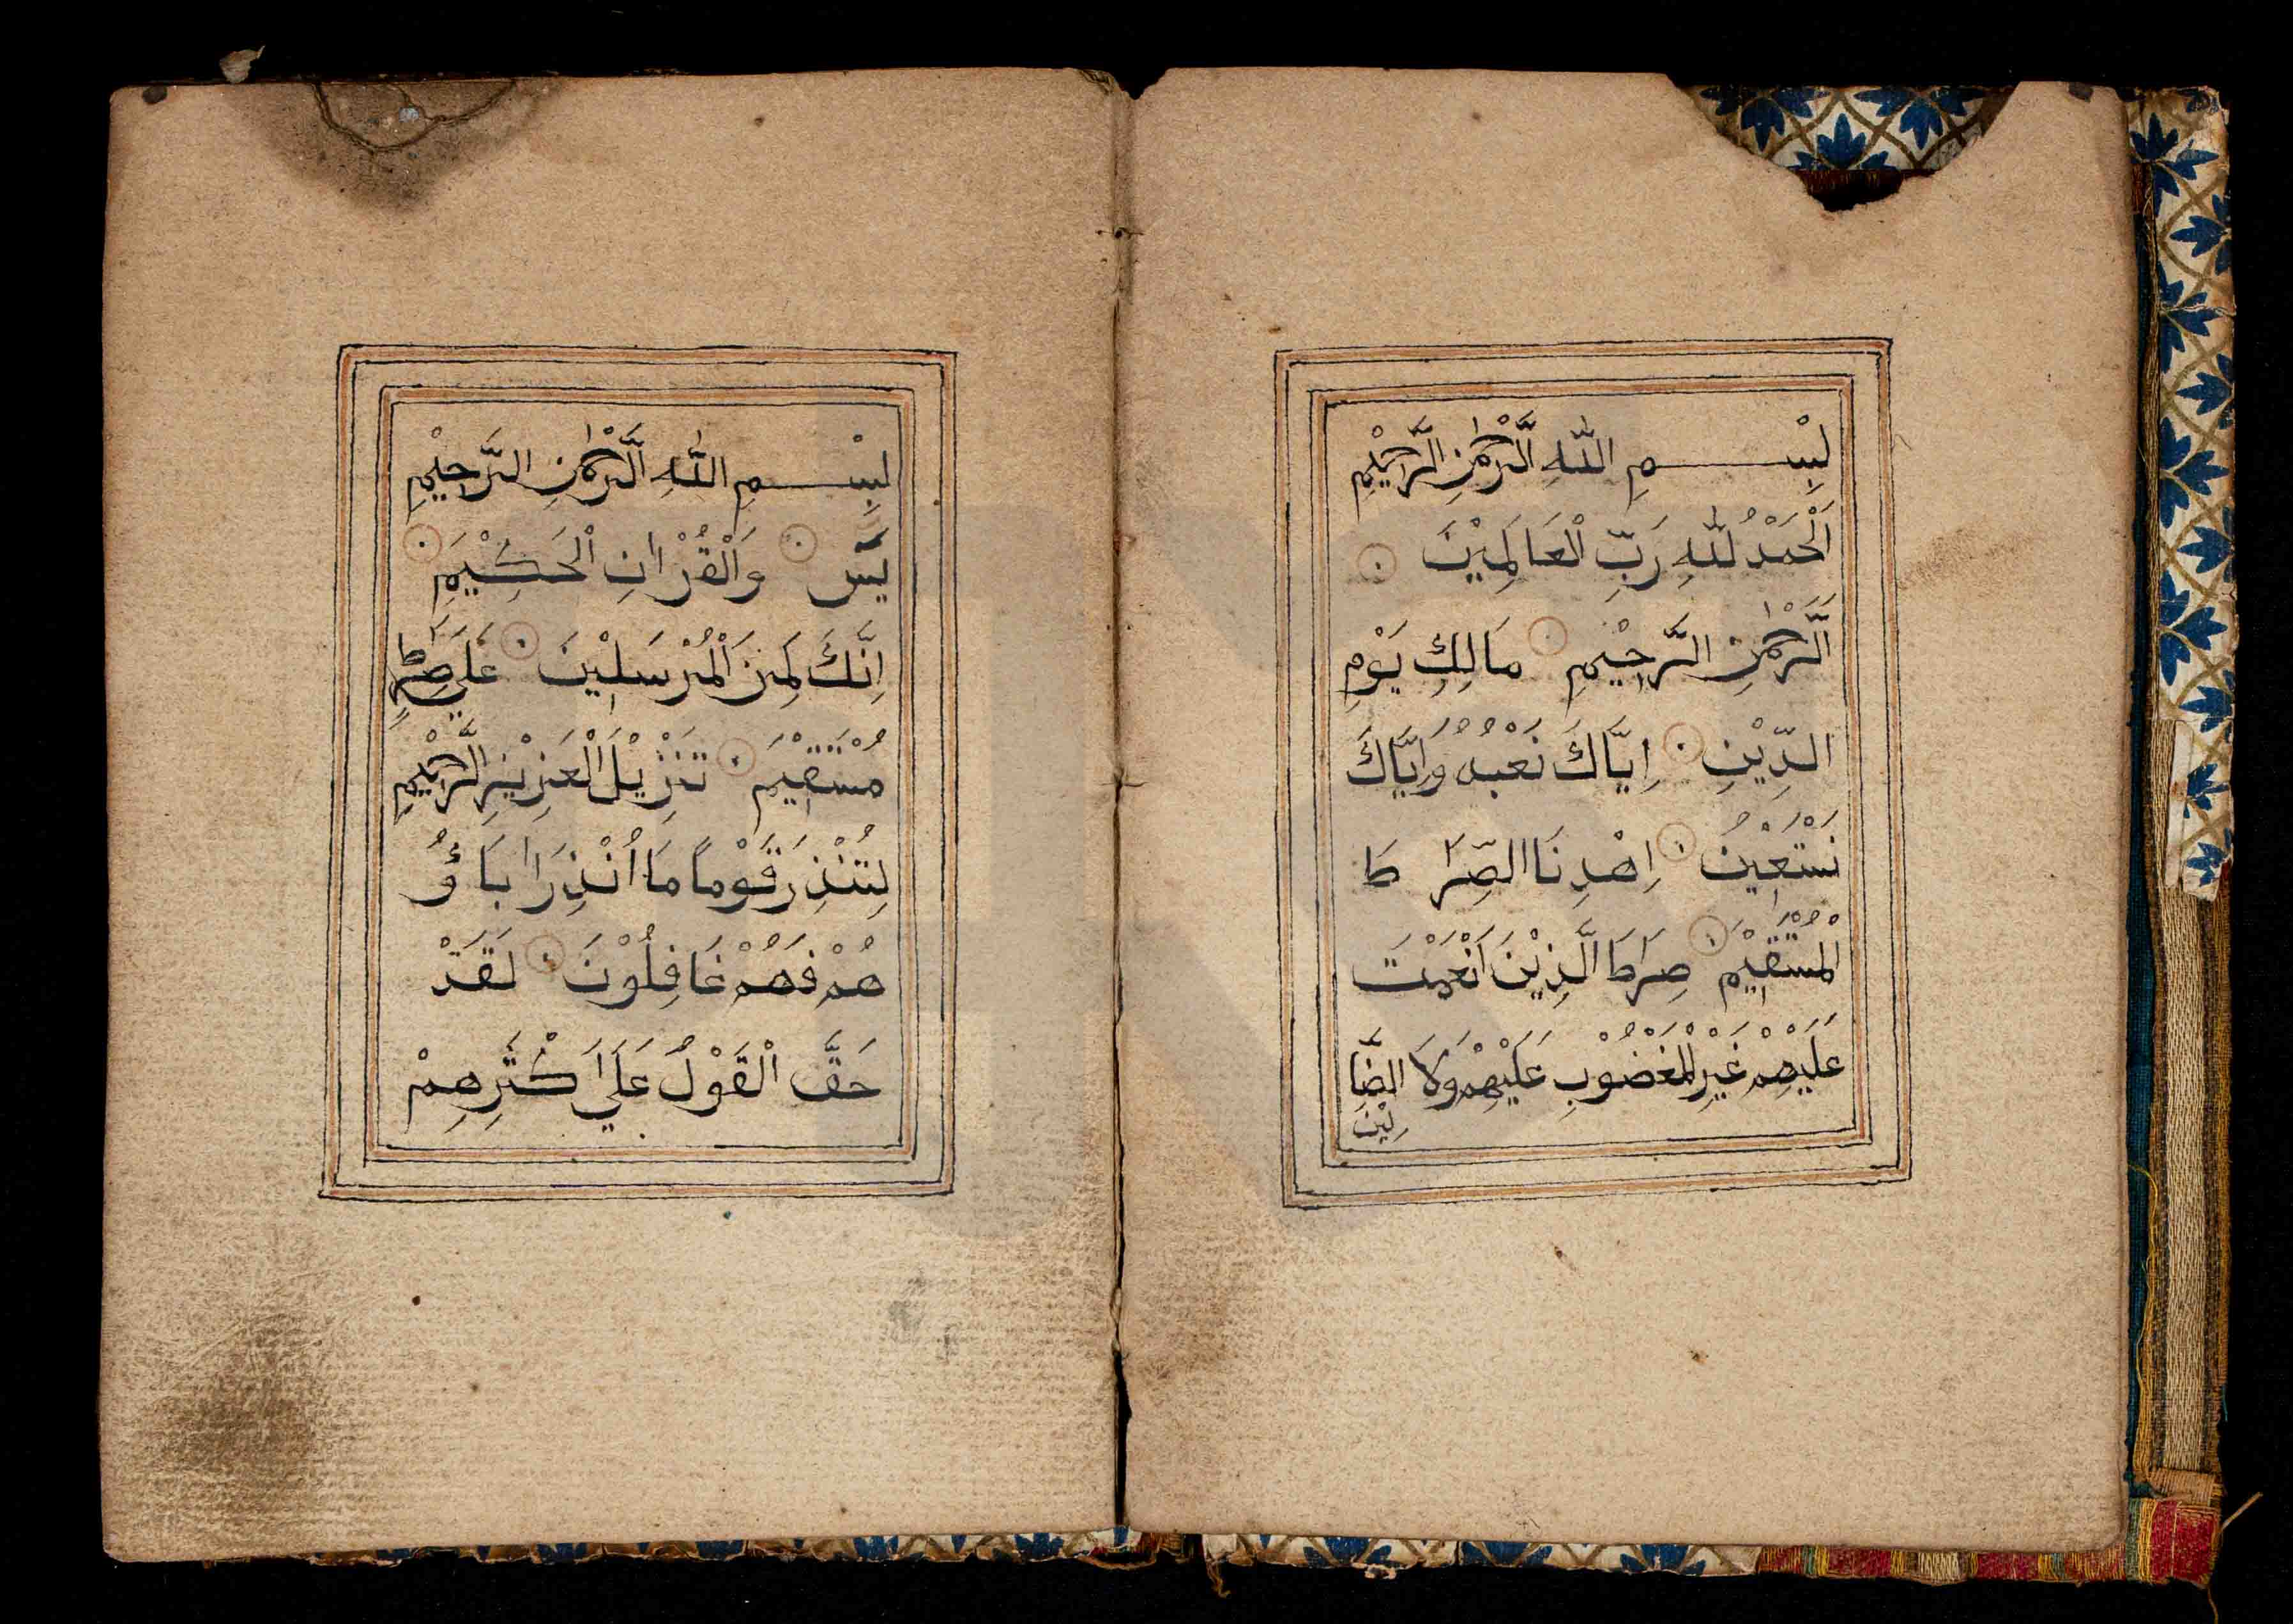 بِسْمِ اللّٰهِ الَّرحْمٰنِ الَّرحِيْمِ
اَلْحَمْدُ لِلّٰهِ رَبِّ الْعَالَمِيْنَ
الَّرحْمٰنِ الَّرحِيْمِ مَالِكِ يَوْمِ
الدِّيْنِ اِيَّاكَ نَعْبُدُ وَاِيَّاكَ
نَسْتَعِيْنُ اِهْدِنَا الصِّرَا طَ
الْمُسْتَقِيْمَ صِرَاطَ الَّذِيْنَ اَنْعَمْتَ
عَلَيْهِمْ غَيْرِ الْمَغْضُوْبِ عَلَيْهِمْ وَلَا الضَّا
لِيْنَ
بِسْمِ اللّٰهِ الَّرحْمٰنِ الَّرحِيْمِ
يٰسٓ وَالْقُرْاٰنِ الْحَكِيْمِ
اِنَّكَ لَمِنَ الْمُرْسَلِيْنَ عَلَي صِرَاطٍ
مُسْتَقِيْمَ تَنْزِيْلَ الْعَزِيْزِ الَّرحِيْمِ
لِتُنْذِرَ قَوْمًا مَا اُنْذِرَ اٰبَاؤُ
هُمْ فَهُمْ غَافِلُوْنَ لَقَدْ
حَقَّ الْقَوْلُ عَلَي اَكْثَرِهِمْ